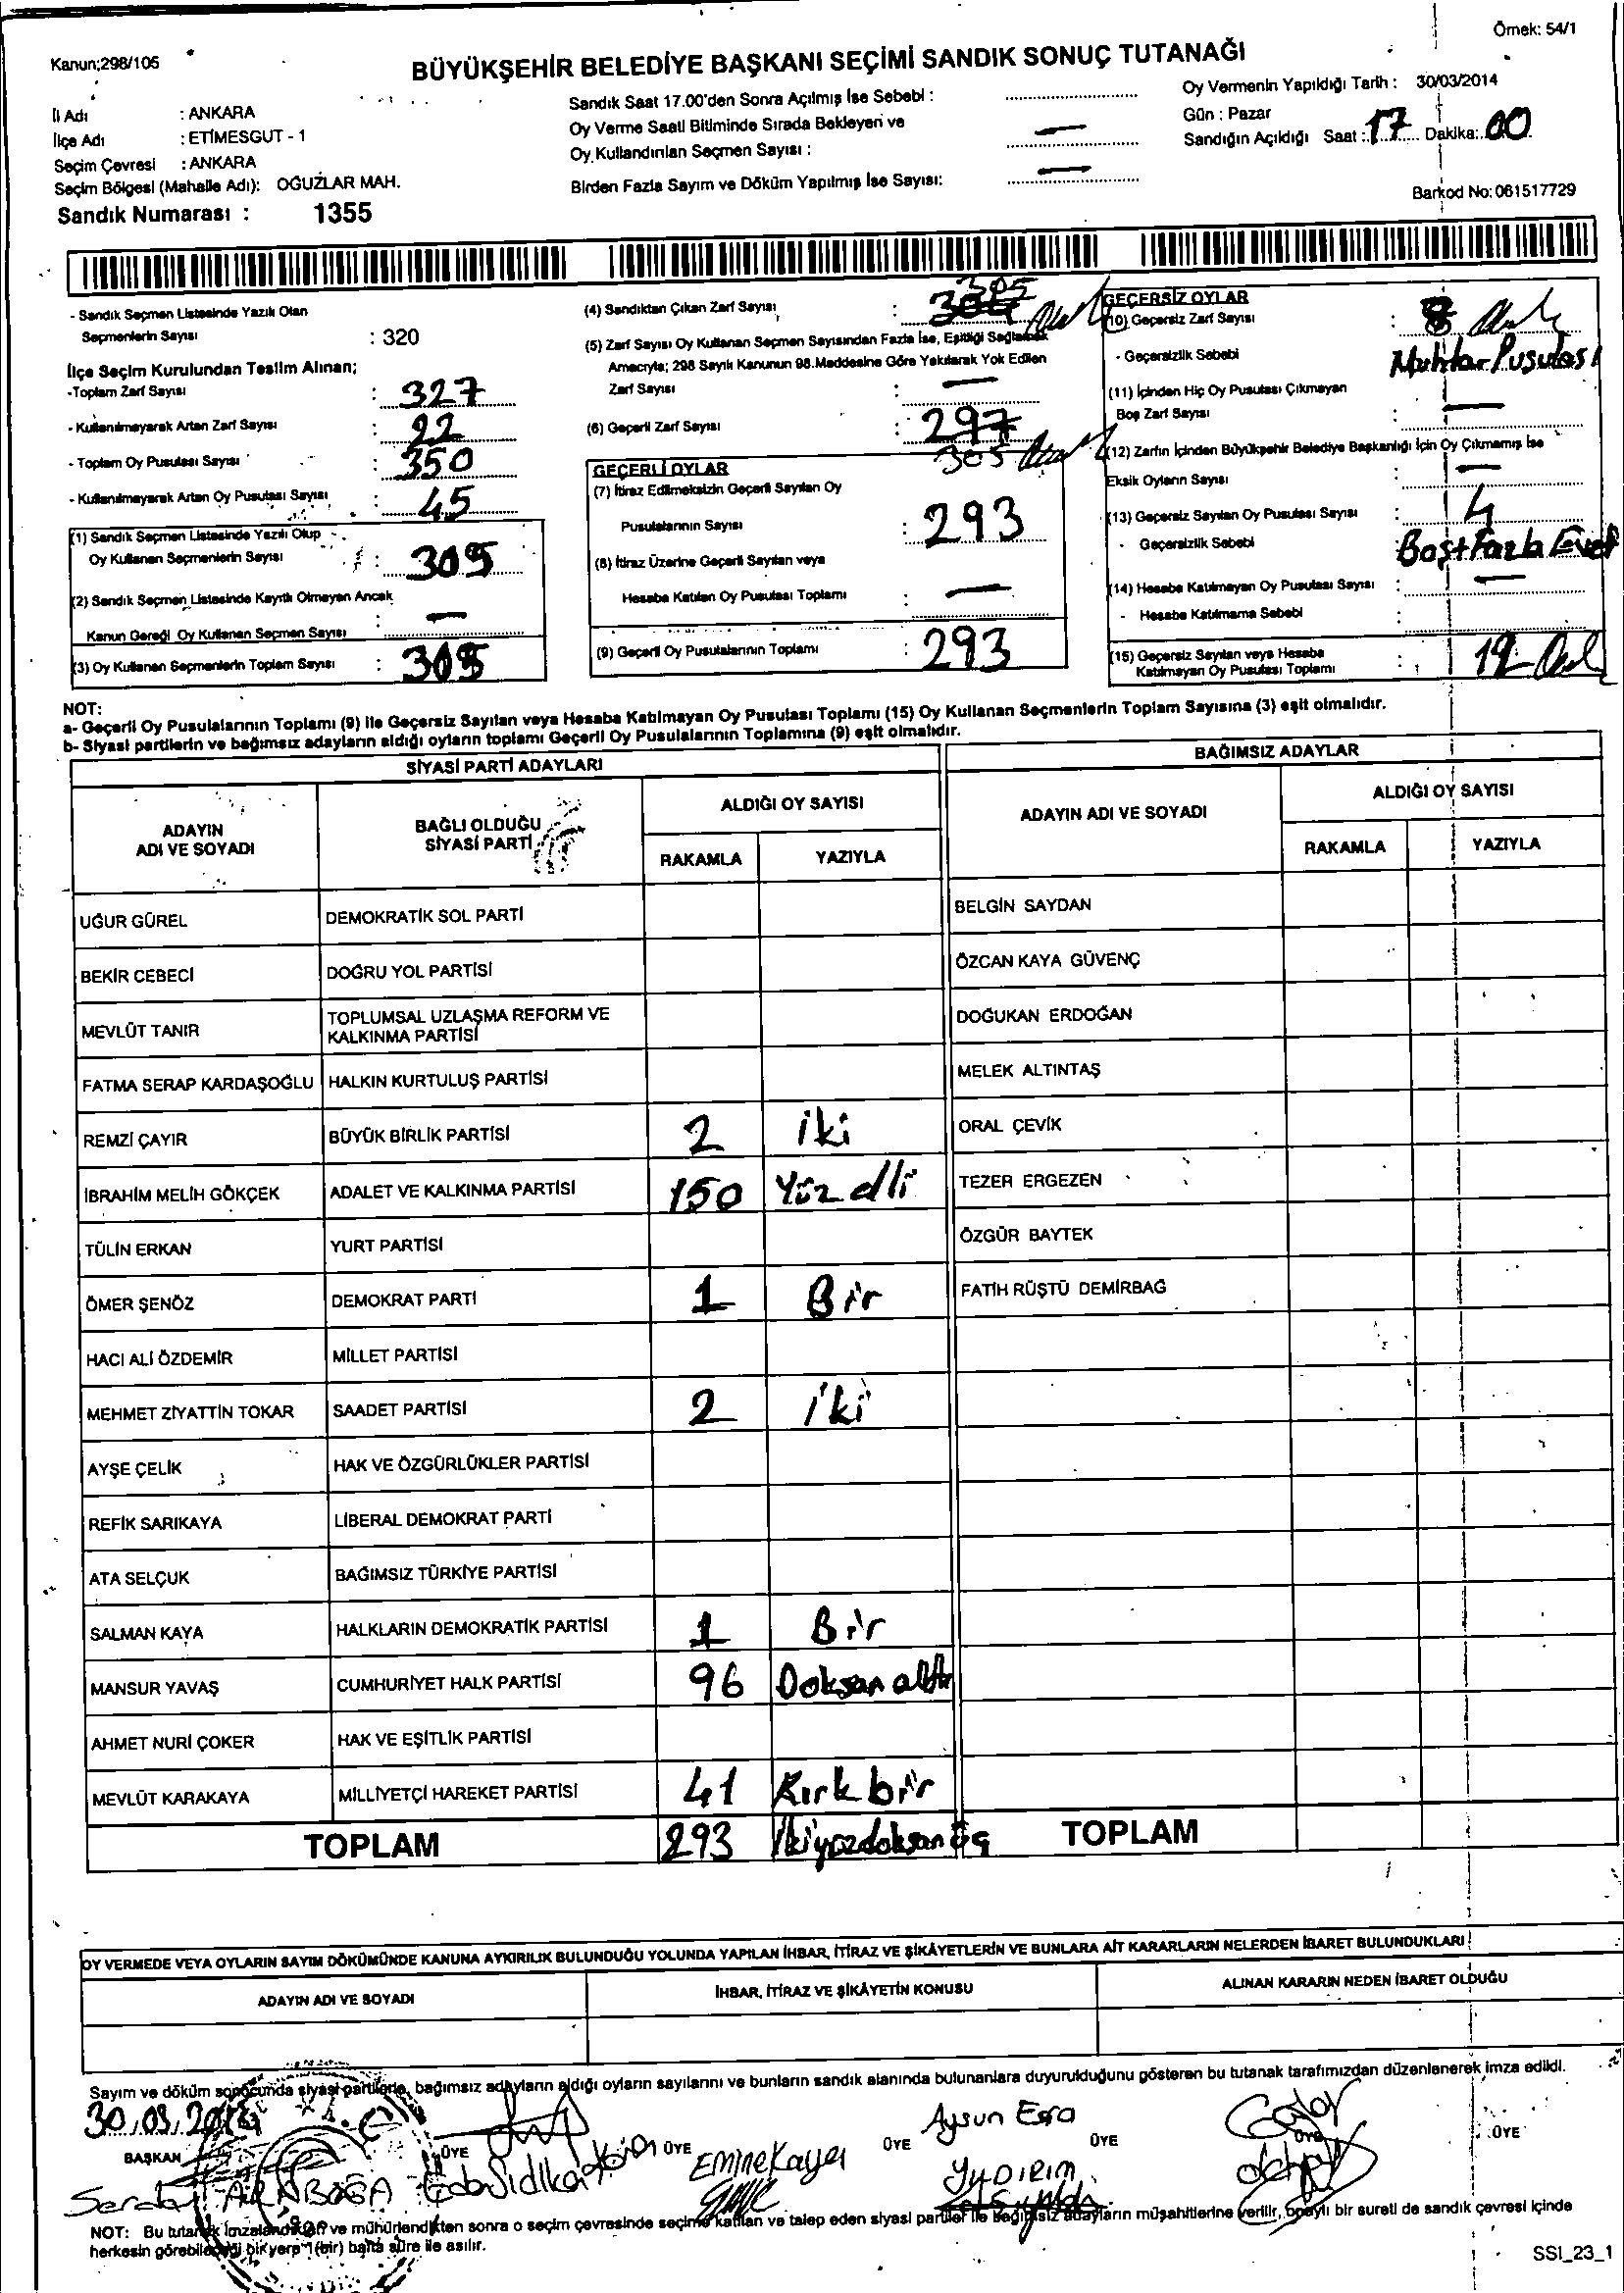 Örnek: 54/1
Kanun;298/105
BÜYÜKŞEHİR BELEDİYE BAŞKANI SEÇİMİ SANDIK SONUÇ TUTANAĞI
İl Adı : ANKARA
İlçe Adı : ETİMESGUT - 1
Seçim Çevresi : ANKARA
Seçim Bölgesi (Mahalle Adı): OĞUZLAR MAH.
Sandık Numarası : 1355
Sandık Saat 17.00'den Sonra Açılmış İse Sebebi :
Oy Verme Saati Bitiminde Sırada Bekleyen ve
Oy Kullandırılan Seçmen Sayısı : —
Birden Fazla Sayım ve Döküm Yapılmış İse Sayısı: —
Oy Vermenin Yapıldığı Tarih : 30/03/2014
Gün : Pazar
Sandığın Açıldığı Saat : 17 Dakika: 00
Barkod No: 061517729
- Sandık Seçmen Listesinde Yazılı Olan
Seçmenlerin Sayısı : 320
İlçe Seçim Kurulundan Teslim Alınan;
-Toplam Zarf Sayısı : 327
- Kullanılmayarak Artan Zarf Sayısı : 22
- Toplam Oy Pusulası Sayısı : 350
- Kullanılmayarak Artan Oy Pusulası Sayısı : 45
(1) Sandık Seçmen Listesinde Yazılı Olup
Oy Kullanan Seçmenlerin Sayısı : 305
(2) Sandık Seçmen Listesinde Kayıtlı Olmayan Ancak
Kanun Gereği Oy Kullanan Seçmen Sayısı : —
(3) Oy Kullanan Seçmenlerin Toplam Sayısı : 305
305
(4) Sandıktan Çıkan Zarf Sayısı : 304
(5) Zarf Sayısı Oy Kullanan Seçmen Sayısından Fazla İse, Eşitliği Sağlamak
Amacıyla; 298 Sayılı Kanunun 98.Maddesine Göre Yakılarak Yok Edilen
Zarf Sayısı : —
(6) Geçerli Zarf Sayısı : 297
305
GEÇERLİ OYLAR
(7) İtiraz Edilmeksizin Geçerli Sayılan Oy
Pusulalarının Sayısı : 293
(8) İtiraz Üzerine Geçerli Sayılan veya
Hesaba Katılan Oy Pusulası Toplamı : —
(9) Geçerli Oy Pusulalarının Toplamı : 293
GEÇERSİZ OYLAR
(10) Geçersiz Zarf Sayısı : 8
- Geçersizlik Sebebi Muhtar Pusulası
(11) İçinden Hiç Oy Pusulası Çıkmayan
Boş Zarf Sayısı : —
(12) Zarfın İçinden Büyükşehir Belediye Başkanlığı İçin Oy Çıkmamış İse
Eksik Oyların Sayısı : —
(13) Geçersiz Sayılan Oy Pusulası Sayısı : 4
- Geçersizlik Sebebi : Boş+Fazla Evet
(14) Hesaba Katılmayan Oy Pusulası Sayısı : —
- Hesaba Katılmama Sebebi :
(15) Geçersiz Sayılan veya Hesaba
Katılmayan Oy Pusulası Toplamı : 12
NOT:
a- Geçerli Oy Pusulalarının Toplamı (9) ile Geçersiz Sayılan veya Hesaba Katılmayan Oy Pusulası Toplamı (15) Oy Kullanan Seçmenlerin Toplam Sayısına (3) eşit olmalıdır.
b- Siyasi partilerin ve bağımsız adayların aldığı oyların toplamı Geçerli Oy Pusulalarının Toplamına (9) eşit olmalıdır.
SİYASİ PARTİ ADAYLARI
ADAYIN
ADI VE SOYADI
BAĞLI OLDUĞU
SİYASİ PARTİ
ALDIĞI OY SAYISI
RAKAMLA YAZIYLA
UĞUR GÜREL DEMOKRATİK SOL PARTİ
BEKİR CEBECİ DOĞRU YOL PARTİSİ
MEVLÜT TANIR TOPLUMSAL UZLAŞMA REFORM VE
KALKINMA PARTİSİ
FATMA SERAP KARDAŞOĞLU HALKIN KURTULUŞ PARTİSİ
REMZİ ÇAYIR BÜYÜK BİRLİK PARTİSİ 2 iki
İBRAHİM MELİH GÖKÇEK ADALET VE KALKINMA PARTİSİ 150 Yüz elli
TÜLİN ERKAN YURT PARTİSİ
ÖMER ŞENÖZ DEMOKRAT PARTİ 1 Bir
HACI ALİ ÖZDEMİR MİLLET PARTİSİ
MEHMET ZİYATTİN TOKAR SAADET PARTİSİ 2 iki
AYŞE ÇELİK HAK VE ÖZGÜRLÜKLER PARTİSİ
REFİK SARIKAYA LİBERAL DEMOKRAT PARTİ
ATA SELÇUK BAĞIMSIZ TÜRKİYE PARTİSİ
SALMAN KAYA HALKLARIN DEMOKRATİK PARTİSİ 1 Bir
MANSUR YAVAŞ CUMHURİYET HALK PARTİSİ 96 Doksan altı
AHMET NURİ ÇOKER HAK VE EŞİTLİK PARTİSİ
MEVLÜT KARAKAYA MİLLİYETÇİ HAREKET PARTİSİ 41 Kırk bir
TOPLAM 293 İkiyüzdoksan üç
BAĞIMSIZ ADAYLAR
ADAYIN ADI VE SOYADI
ALDIĞI OY SAYISI
RAKAMLA YAZIYLA
BELGİN SAYDAN
ÖZCAN KAYA GÜVENÇ
DOĞUKAN ERDOĞAN
MELEK ALTINTAŞ
ORAL ÇEVİK
TEZER ERGEZEN
ÖZGÜR BAYTEK
FATİH RÜŞTÜ DEMİRBAĞ
TOPLAM
OY VERMEDE VEYA OYLARIN SAYIM DÖKÜMÜNDE KANUNA AYKIRILIK BULUNDUĞU YOLUNDA YAPILAN İHBAR, İTİRAZ VE ŞİKÂYETLERİN VE BUNLARA AİT KARARLARIN NELERDEN İBARET BULUNDUKLARI
ADAYIN ADI VE SOYADI
İHBAR, İTİRAZ VE ŞİKÂYETİN KONUSU
ALINAN KARARIN NEDEN İBARET OLDUĞU
Sayım ve döküm sonucunda siyasi partilerin, bağımsız adayların aldığı oyların sayılarını ve bunların sandık alanında bulunanlara duyurulduğunu gösteren bu tutanak tarafımızdan düzenlenerek imza edildi.
30.03.2014
BAŞKAN ÜYE ÜYE ÜYE ÜYE ÜYE ÜYE
Emine Kaya
Aysun Esra
YILDIRIM
NOT: Bu tutanak imzalandıktan ve mühürlendikten sonra o seçim çevresinde seçime katılan ve talep eden siyasi partiler ile bağımsız adayların müşahitlerine verilir, onaylı bir sureti de sandık çevresi içinde
herkesin görebileceği bir yere 1 (bir) hafta süre ile asılır.
SSI_23_1